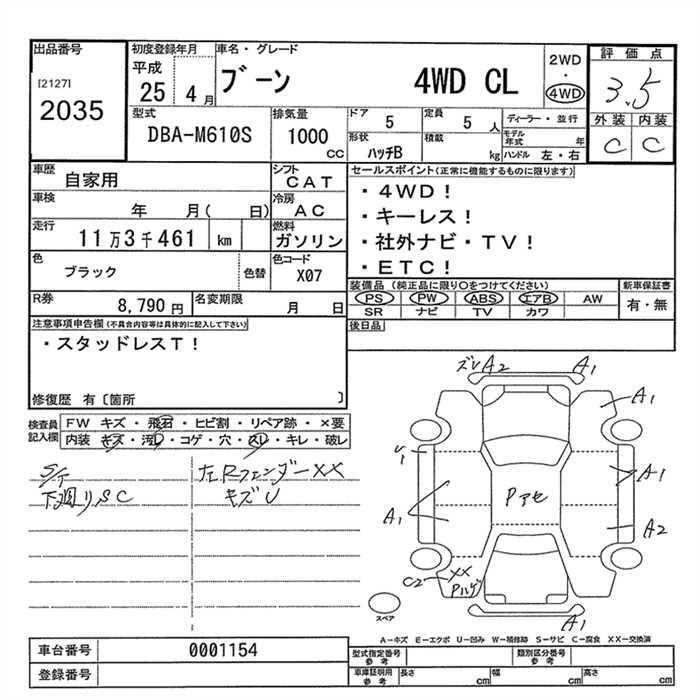 出品番号
[2127]
2035
初度登録年月
平成
25 年 4 月
車名・グレード
ブーン 4WD CL
2WD
・
4WD
評価点
3.5
外装 内装
C C
型式
DBA-M610S
排気量
1000
CC
ドア 5
定員 5 人
形状 ハッチB
積載 kg
ディーラー・並行
モデル年式 年
ハンドル 左・右
車歴 自家用
シフト CAT
車検 年 月( 日)
冷房 AC
走行 11万3千461 km
燃料 ガソリン
色 ブラック
色替
色コード X07
R券 8,790 円
名変期限 月 日
セールスポイント(正常に機能するものに限ります)
・4WD！
・キーレス！
・社外ナビ・TV！
・ETC！
装備品 (純正品に限り○をつけてください)
PS PW ABS エアB AW
SR ナビ TV カワ
新車保証書
有・無
後日品
注意事項申告欄(不具合内容等は具体的に記入して下さい)
・スタッドレスT！
修復歴 有〔箇所 〕
検査員記入欄
FW キズ・飛石・ヒビ割・リペア跡・×要
内装 キズ・汚レ・コゲ・穴・スレ・キレ・破レ
S/T
下廻りSC
左Rフェンダー××
キズU
ズレA2
A1
A1
U1
A1
A1
A2
Pアセ
C2
××
Pハゲ
A1
スペア
A-キズ E-エクボ U-凹み W-補修跡 S-サビ C-腐食 XX-交換済
車台番号 0001154
登録番号
型式指定番号
参考
類別区分番号
参考
車庫証明用
参考
長さ cm
幅 cm
高さ cm